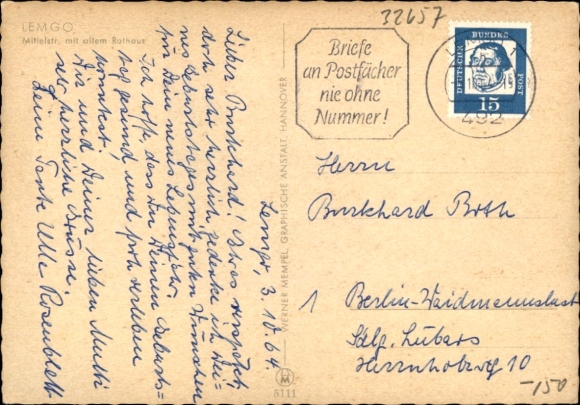 32657
LEMGO
Mittelstr. mit altem Rathaus
Briefe
an Postfächer
nie ohne
Nummer!
DEUTSCHE
BUNDES
POST
15
492
Lemgo, 3.10.64.
Lieber Burkhard! Etwas verspätet,
doch sehr herzlich gedenke ich Dei-
nes Geburtstages mit guten Wünschen
für Dein neues Lebensjahr.
Ich hoffe, dass Du Deinen Geburts-
tag gesund und froh verleben
konntest.
Dir und Deiner lieben Mutti
sehr herzliche Grüsse.
Deine Tante Ulle Rosenblatt
WERNER MEMPEL, GRAPHISCHE ANSTALT, HANNOVER
M
5111
Herrn
Burkhard Both
1 Berlin-Waidmannslust
Sdlg. Lübars
Herrnholzweg 10
-150